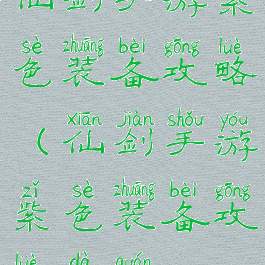 仙剑手游紫
sè zhuāng bèi gōng lüè
色装备攻略
xiān jiàn shǒu yóu
（仙剑手游
zǐ sè zhuāng bèi gōng
紫色装备攻
lüè dà quán